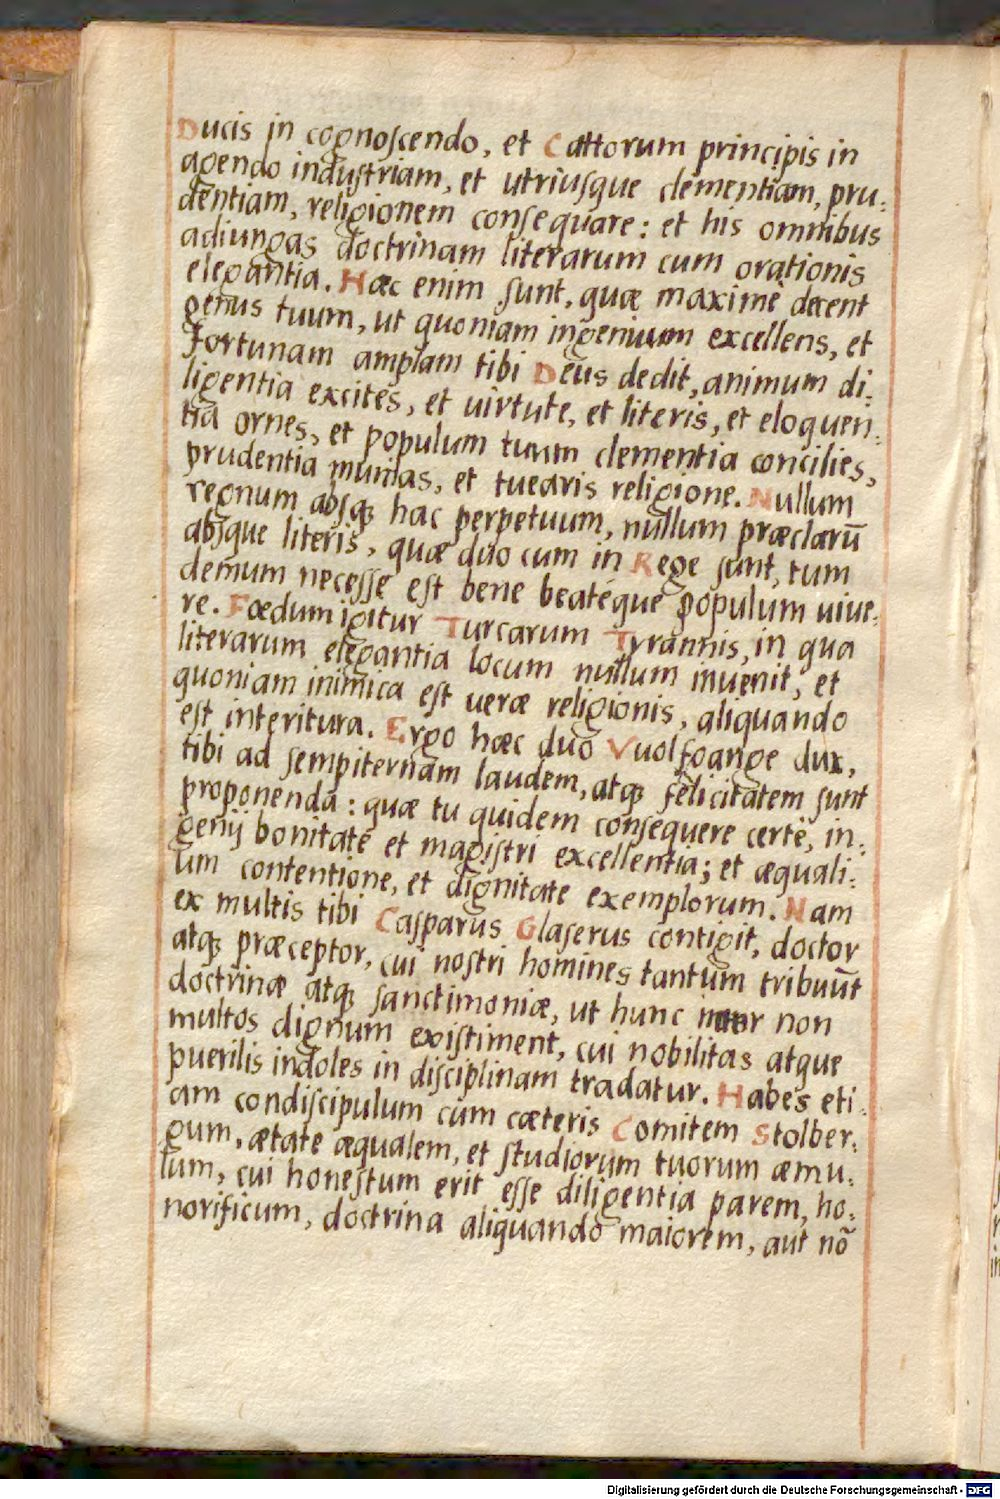 Ducis in cognoscendo, et Cattorum principis in
agendo industriam, et utriusque clementiam, pru:
dentiam, religionem consequare: et his omnibus
adiungas doctrinam literarum cum orationis
elegantia. Hæc enim sunt, quæ maximè decent
genus tuum, ut quoniam ingenium excellens, et
fortunam amplam tibi Deus dedit, animum di:
ligentia excites, et uirtute, et literis, et eloquen:
tia ornes, et populum tuum clementia concilies,
prudentia munias, et tuearis religione. Nullum
regnum absqꝫ hac perpetuum, nullum præclarū
absque literis, quæ duo cum in Rege sunt, tum
demum necesse est bene beatéque populum uiue:
re. Fœdum igitur Turcarum Tyrannis, in qua
literarum elegantia locum nullum inuenit, et
quoniam inimica est ueræ religionis, aliquando
est interitura. Ergo hæc duo Vuolfgange dux,
tibi ad sempiternam laudem, atqꝫ felicitatem sunt
proponenda: quæ tu quidem consequere certè, in:
genij bonitate et magistri excellentia; et æquali:
um contentione, et dignitate exemplorum. Nam
ex multis tibi Casparus Glaserus contigit, doctor
atqꝫ præceptor, cui nostri homines tantum tribuūt
doctrinæ atqꝫ sanctimoniæ, ut hunc inter non
multos dignum existiment, cui nobilitas atque
puerilis indoles in disciplinam tradatur. Habes eti:
am condiscipulum cum cæteris Comitem Stolber:
gum, ætate æqualem, et studiorum tuorum æmu:
lum, cui honestum erit esse diligentia parem, ho:
norificum, doctrina aliquando maiorem, aut nō
Digitalisierung gefördert durch die Deutsche Forschungsgemeinschaft - DFG